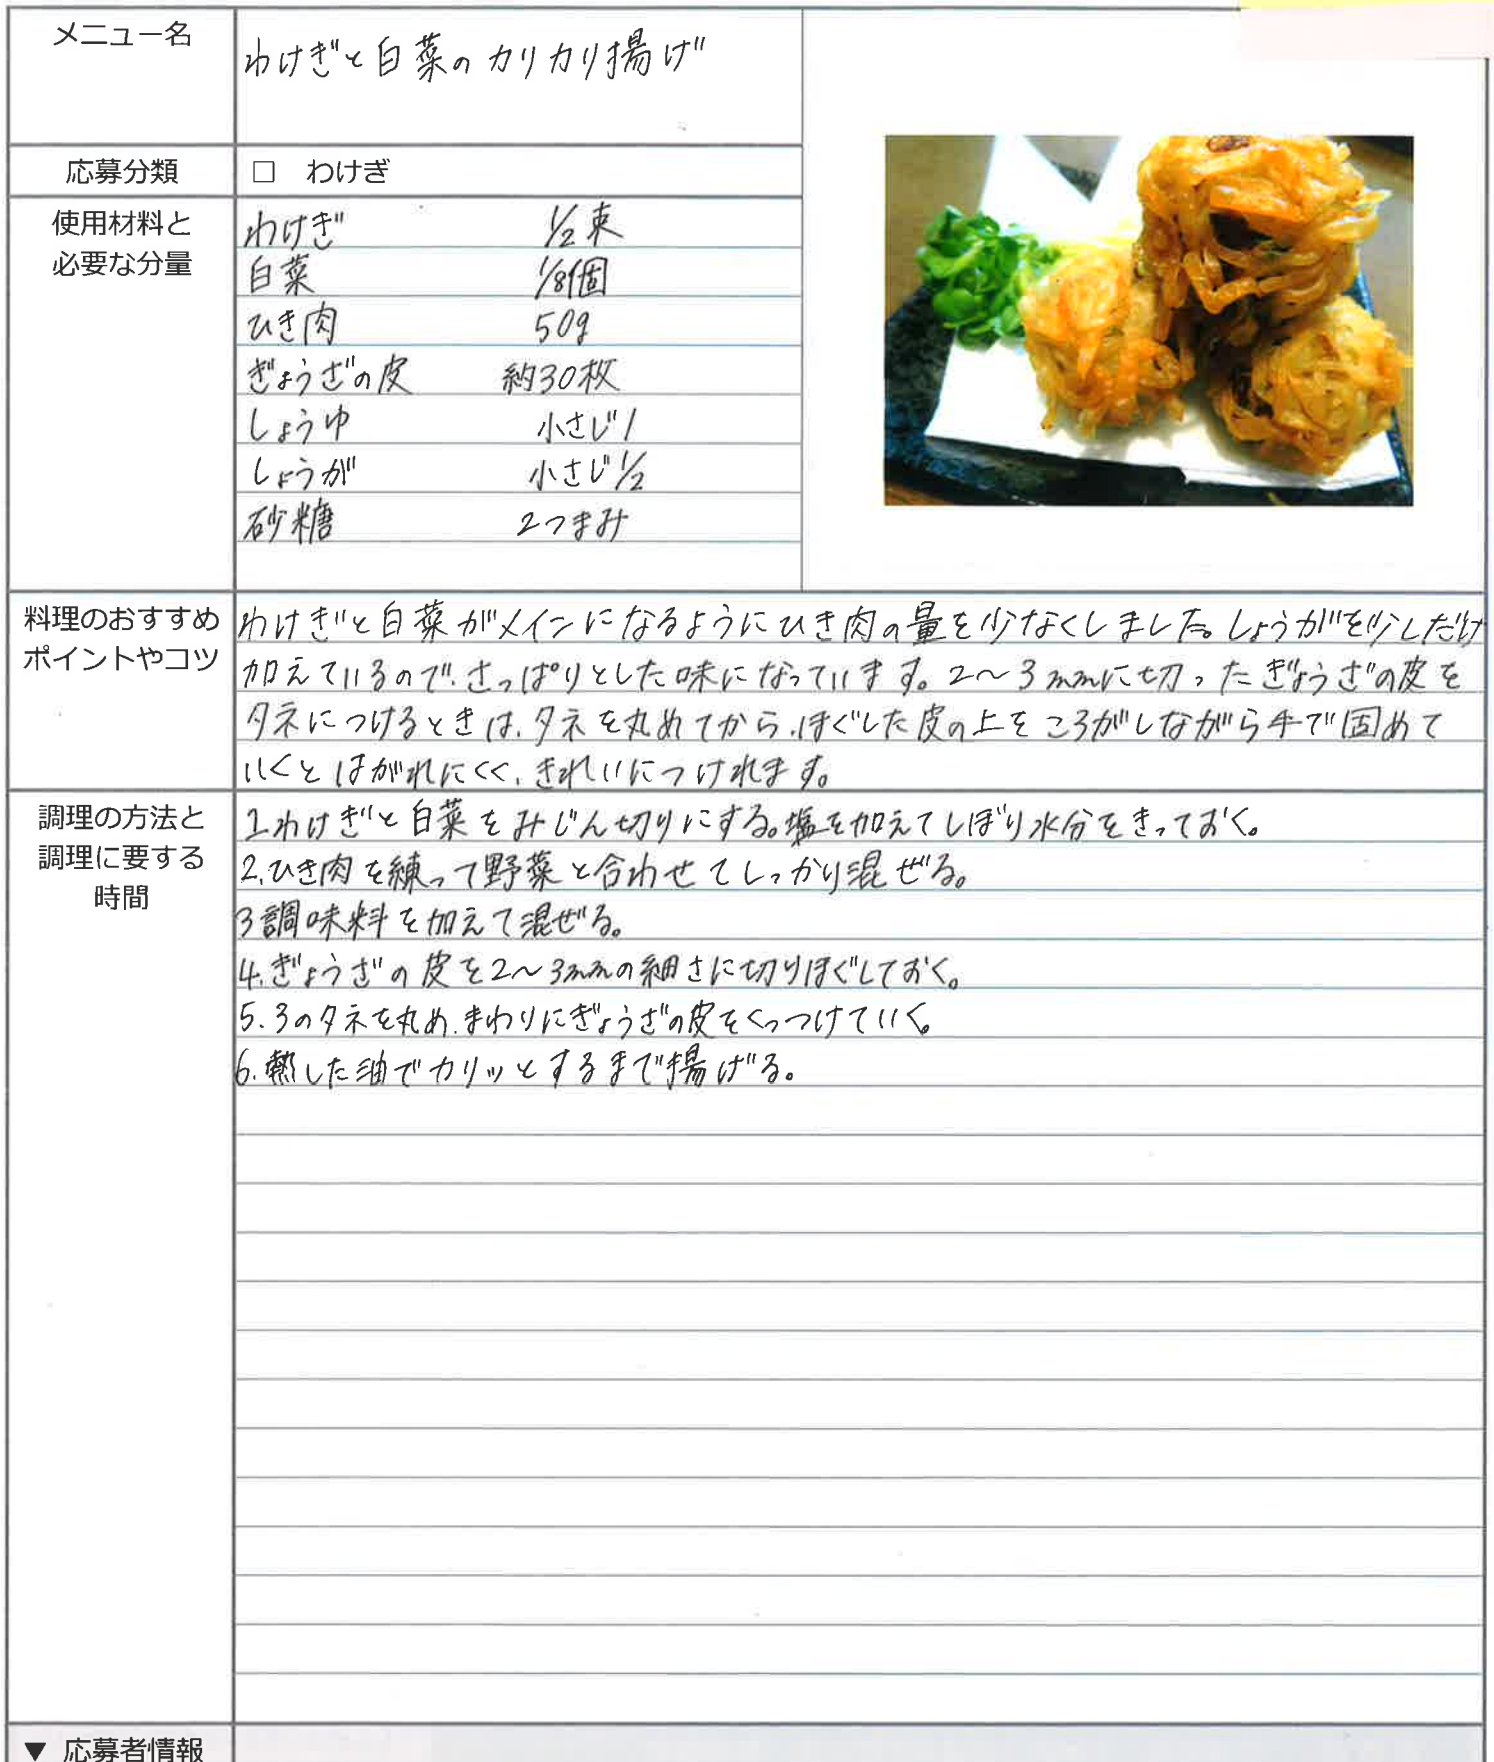 メニュー名
わけぎと白菜のカリカリ揚げ
応募分類
□ わけぎ
使用材料と
必要な分量
わけぎ 1/2束
白菜 1/8個
ひき肉 50g
ぎょうざの皮 約30枚
しょうゆ 小さじ1
しょうが 小さじ1/2
砂糖 2つまみ
料理のおすすめ
ポイントやコツ
わけぎと白菜がメインになるようにひき肉の量を少なくしました。しょうがを少しだけ
加えているので、さっぱりとした味になっています。2〜3mmに切ったぎょうざの皮を
タネにつけるときは、タネを丸めてから、ほぐした皮の上をころがしながら手で固めて
いくとはがれにくく、きれいにつけれます。
調理の方法と
調理に要する
時間
1.わけぎと白菜をみじん切りにする。塩を加えてしぼり水分をきっておく。
2.ひき肉を練って野菜と合わせてしっかり混ぜる。
3調味料を加えて混ぜる。
4.ぎょうざの皮を2〜3mmの細さに切りほぐしておく。
5.3のタネを丸め、まわりにぎょうざの皮をくっつけていく。
6.熱した油でカリッとするまで揚げる。
▼ 応募者情報